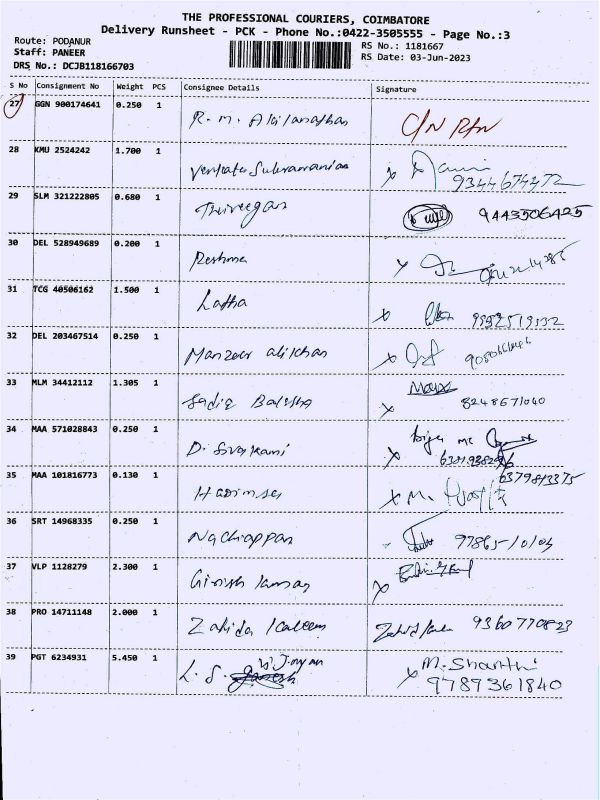 THE PROFESSIONAL COURIERS, COIMBATORE
Delivery Runsheet - PCK - Phone No.:0422-3505555 - Page No.:3
Route: PODANUR
Staff: PANEER
DRS No.: DCJB118166703
RS No.: 1181667
RS Date: 03-Jun-2023
S No Consignment No Weight PCS Consignee Details Signature
27 GGN 900174641 0.250 1 R. M. Akilanathan
28 KMU 2524242 1.700 1 Venkata Subramanian 9344674472
29 SLM 321222805 0.680 1 9443506425
30 DEL 528949689 0.200 1 Reshma
31 TCG 40506162 1.500 1 Latha
32 DEL 203467514 0.250 1 Manzoor alikhan
33 MLM 34412112 1.305 1 8248671040
34 MAA 571028843 0.250 1 D. Sivakami
35 MAA 101816773 0.130 1 6379843375
36 SRT 14968335 0.250 1 Nachiappan
37 VLP 1128279 2.300 1
38 PRO 14711148 2.000 1 Zahida Kaleem 9360770823
39 PGT 6234931 5.450 1 L. S. M. Shanthi
9789361840